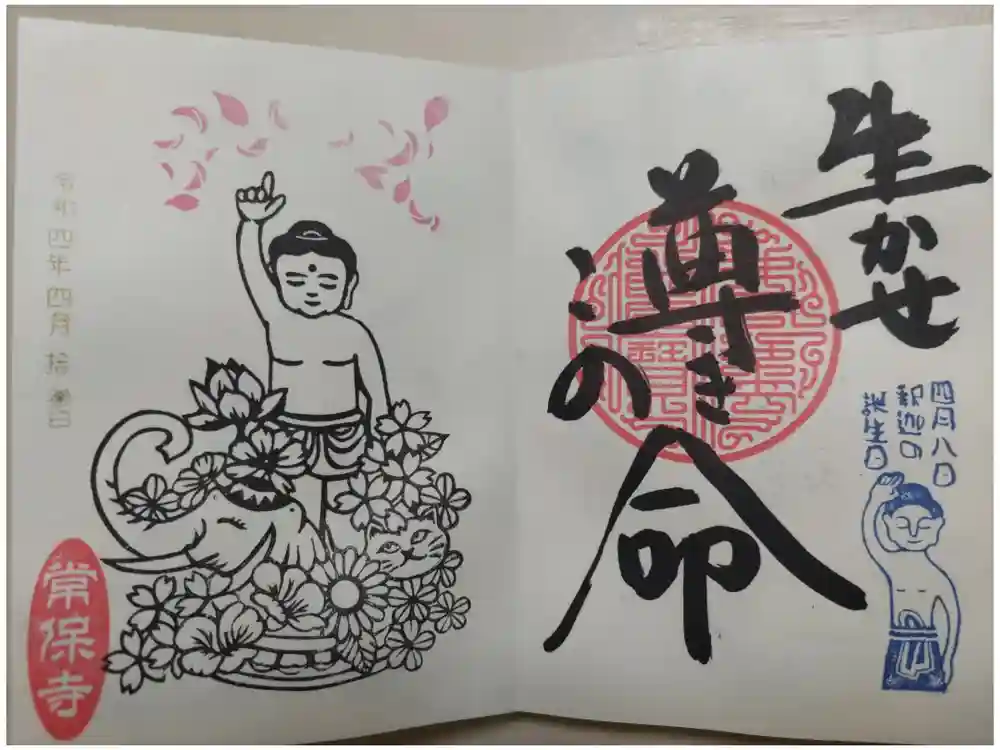 生かせ
尊き
この
命
四月八日
釈迦の
誕生日
令和四年四月拾日
常保寺